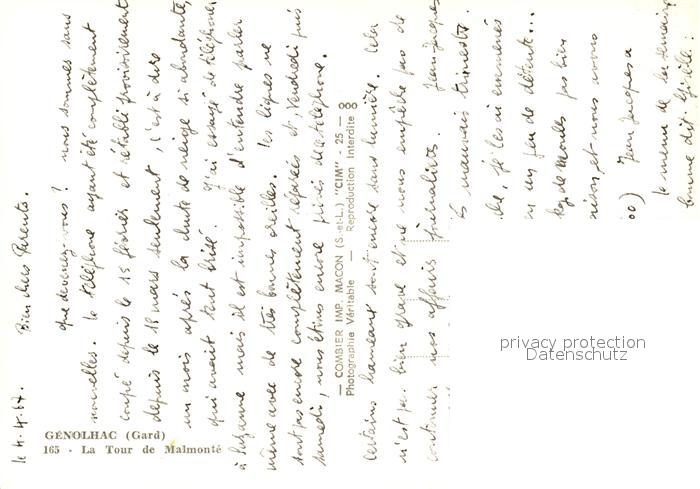 le 4.4.67.
Bien chers Parents.
que devenez-vous ? nous sommes sans
nouvelles. le téléphone ayant été complètement
coupé depuis le 15 février et rétabli provisoirement
depuis le 18 mars seulement, c'est à dire
un mois après la chute de neige si abondante,
qui avait tout brisé. J'ai essayé de téléphoner
à Suzanne mais il est impossible d'entendre parler
même avec de très bonnes oreilles. les lignes ne
sont pas encore complètement réparées et, vendredi puis
samedi, nous étions encore privés de téléphone.
certains hameaux sont encore sans lumière. Cela
n'est pas bien grave et ne nous empêche pas de
continuer nos affaires journalières. Jean Jacques
mauvais trimestre.
je les ai emmenés
un peu de détente...
de Moulis pas bien
et nous avons
oo) Jean Jacques a
le même de
bonne
— COMBIER IMP. MACON (S.-et-L.) "CIM" - 25 — ooo
Photographie Véritable — Reproduction Interdite
GÉNOLHAC (Gard)
165 - La Tour de Malmonté
privacy protection
Datenschutz